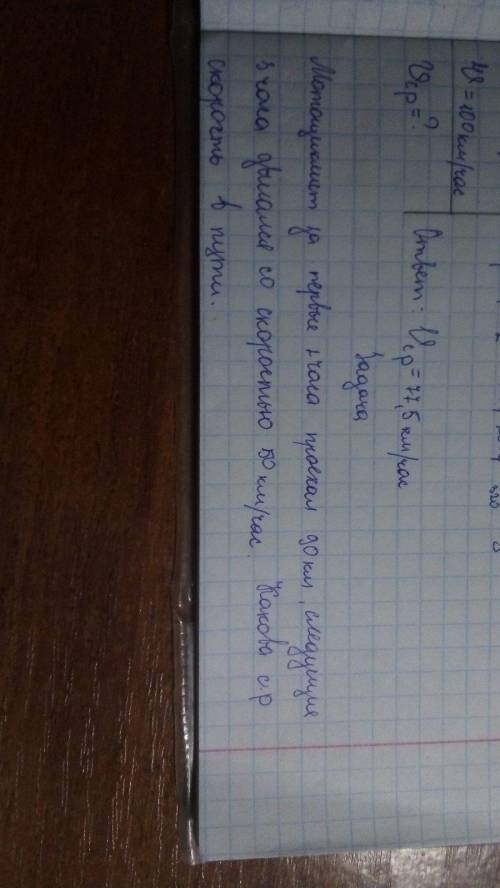 V = 100 км/час
Vср = ?
Ответ: Vср = 77,5 км/час
Задача
Мотоциклист за первые 2 часа проехал 90 км, следующие
3 часа двигался со скоростью 50 км/час. Какова ср
скорость в пути.